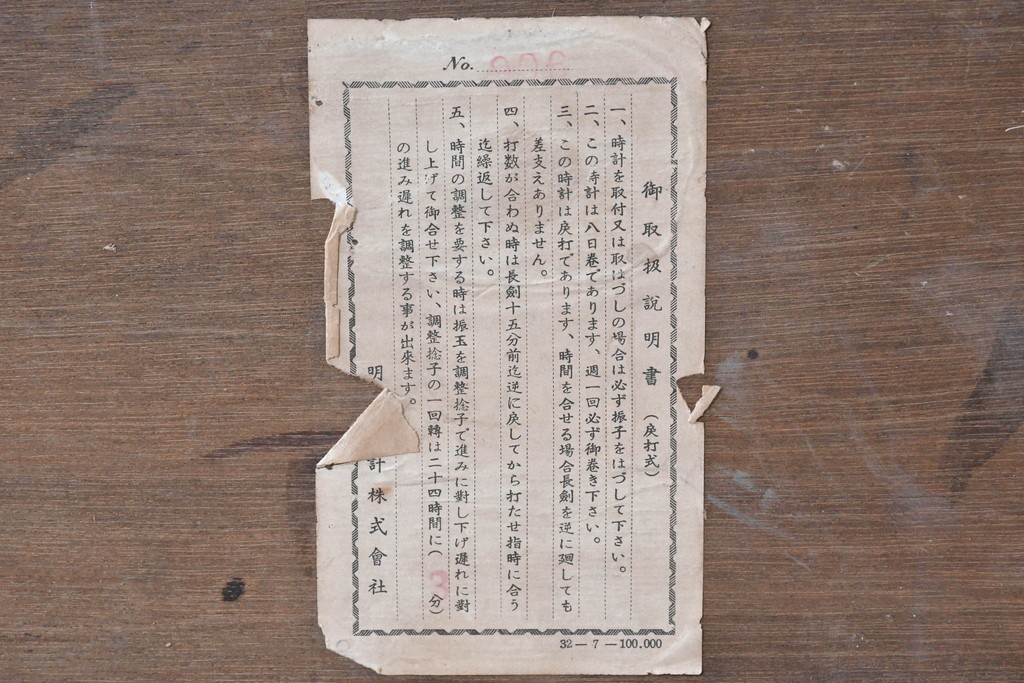 No.
御取扱説明書（戻打式）
一、時計を取付又は取はづしの場合は必ず振子をはづして下さい。
二、この時計は八日巻であります、週一回必ず御巻き下さい。
三、この時計は戻打であります、時間を合せる場合長劍を逆に廻しても
差支えありません。
四、打数が合わぬ時は長劍十五分前迄逆に戻してから打たせ指時に合う
迄繰返して下さい。
五、時間の調整を要する時は振玉を調整捻子で進みに對し下げ遲れに對
し上げて御合せ下さい、調整捻子の一回轉は二十四時間に（3分）
の進み遲れを調整する事が出來ます。
明 計株式會社
32－7－100.000